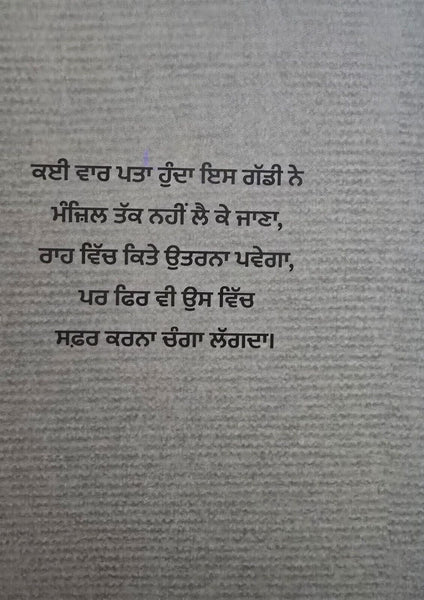 ਕਈ ਵਾਰ ਪਤਾ ਹੁੰਦਾ ਇਸ ਗੱਡੀ ਨੇ
ਮੰਜ਼ਿਲ ਤੱਕ ਨਹੀਂ ਲੈ ਕੇ ਜਾਣਾ,
ਰਾਹ ਵਿੱਚ ਕਿਤੇ ਉਤਰਨਾ ਪਵੇਗਾ,
ਪਰ ਫਿਰ ਵੀ ਉਸ ਵਿੱਚ
ਸਫ਼ਰ ਕਰਨਾ ਚੰਗਾ ਲੱਗਦਾ।